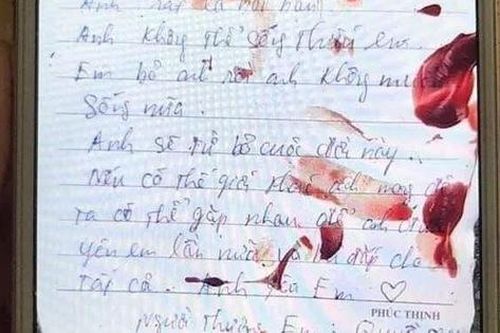 Anh rất
Anh không thể sống thiếu em.
Em bỏ anh rồi anh không
sống nữa.
Anh sẽ từ bỏ cuộc đời này..
Nếu có thế giới thứ mong
ta có thể gặp nhau để anh được
yêu em lần nữa và bù đắp cho
tất cả. Anh yêu Em ♡
PHÚC THỊNH
Người thương Em: